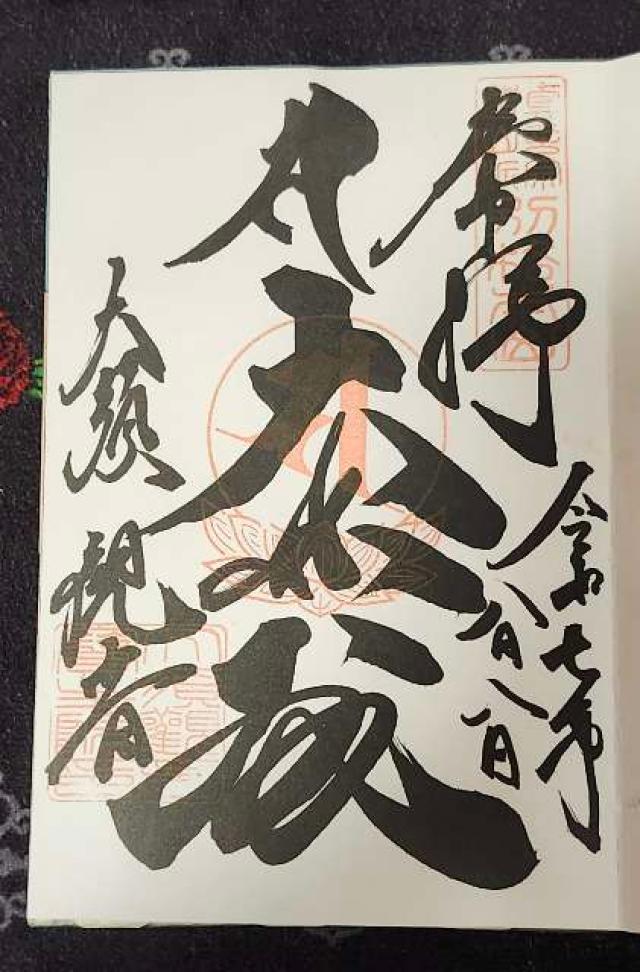 奉拝
令和七年
八月八日
大悲殿
大須観音